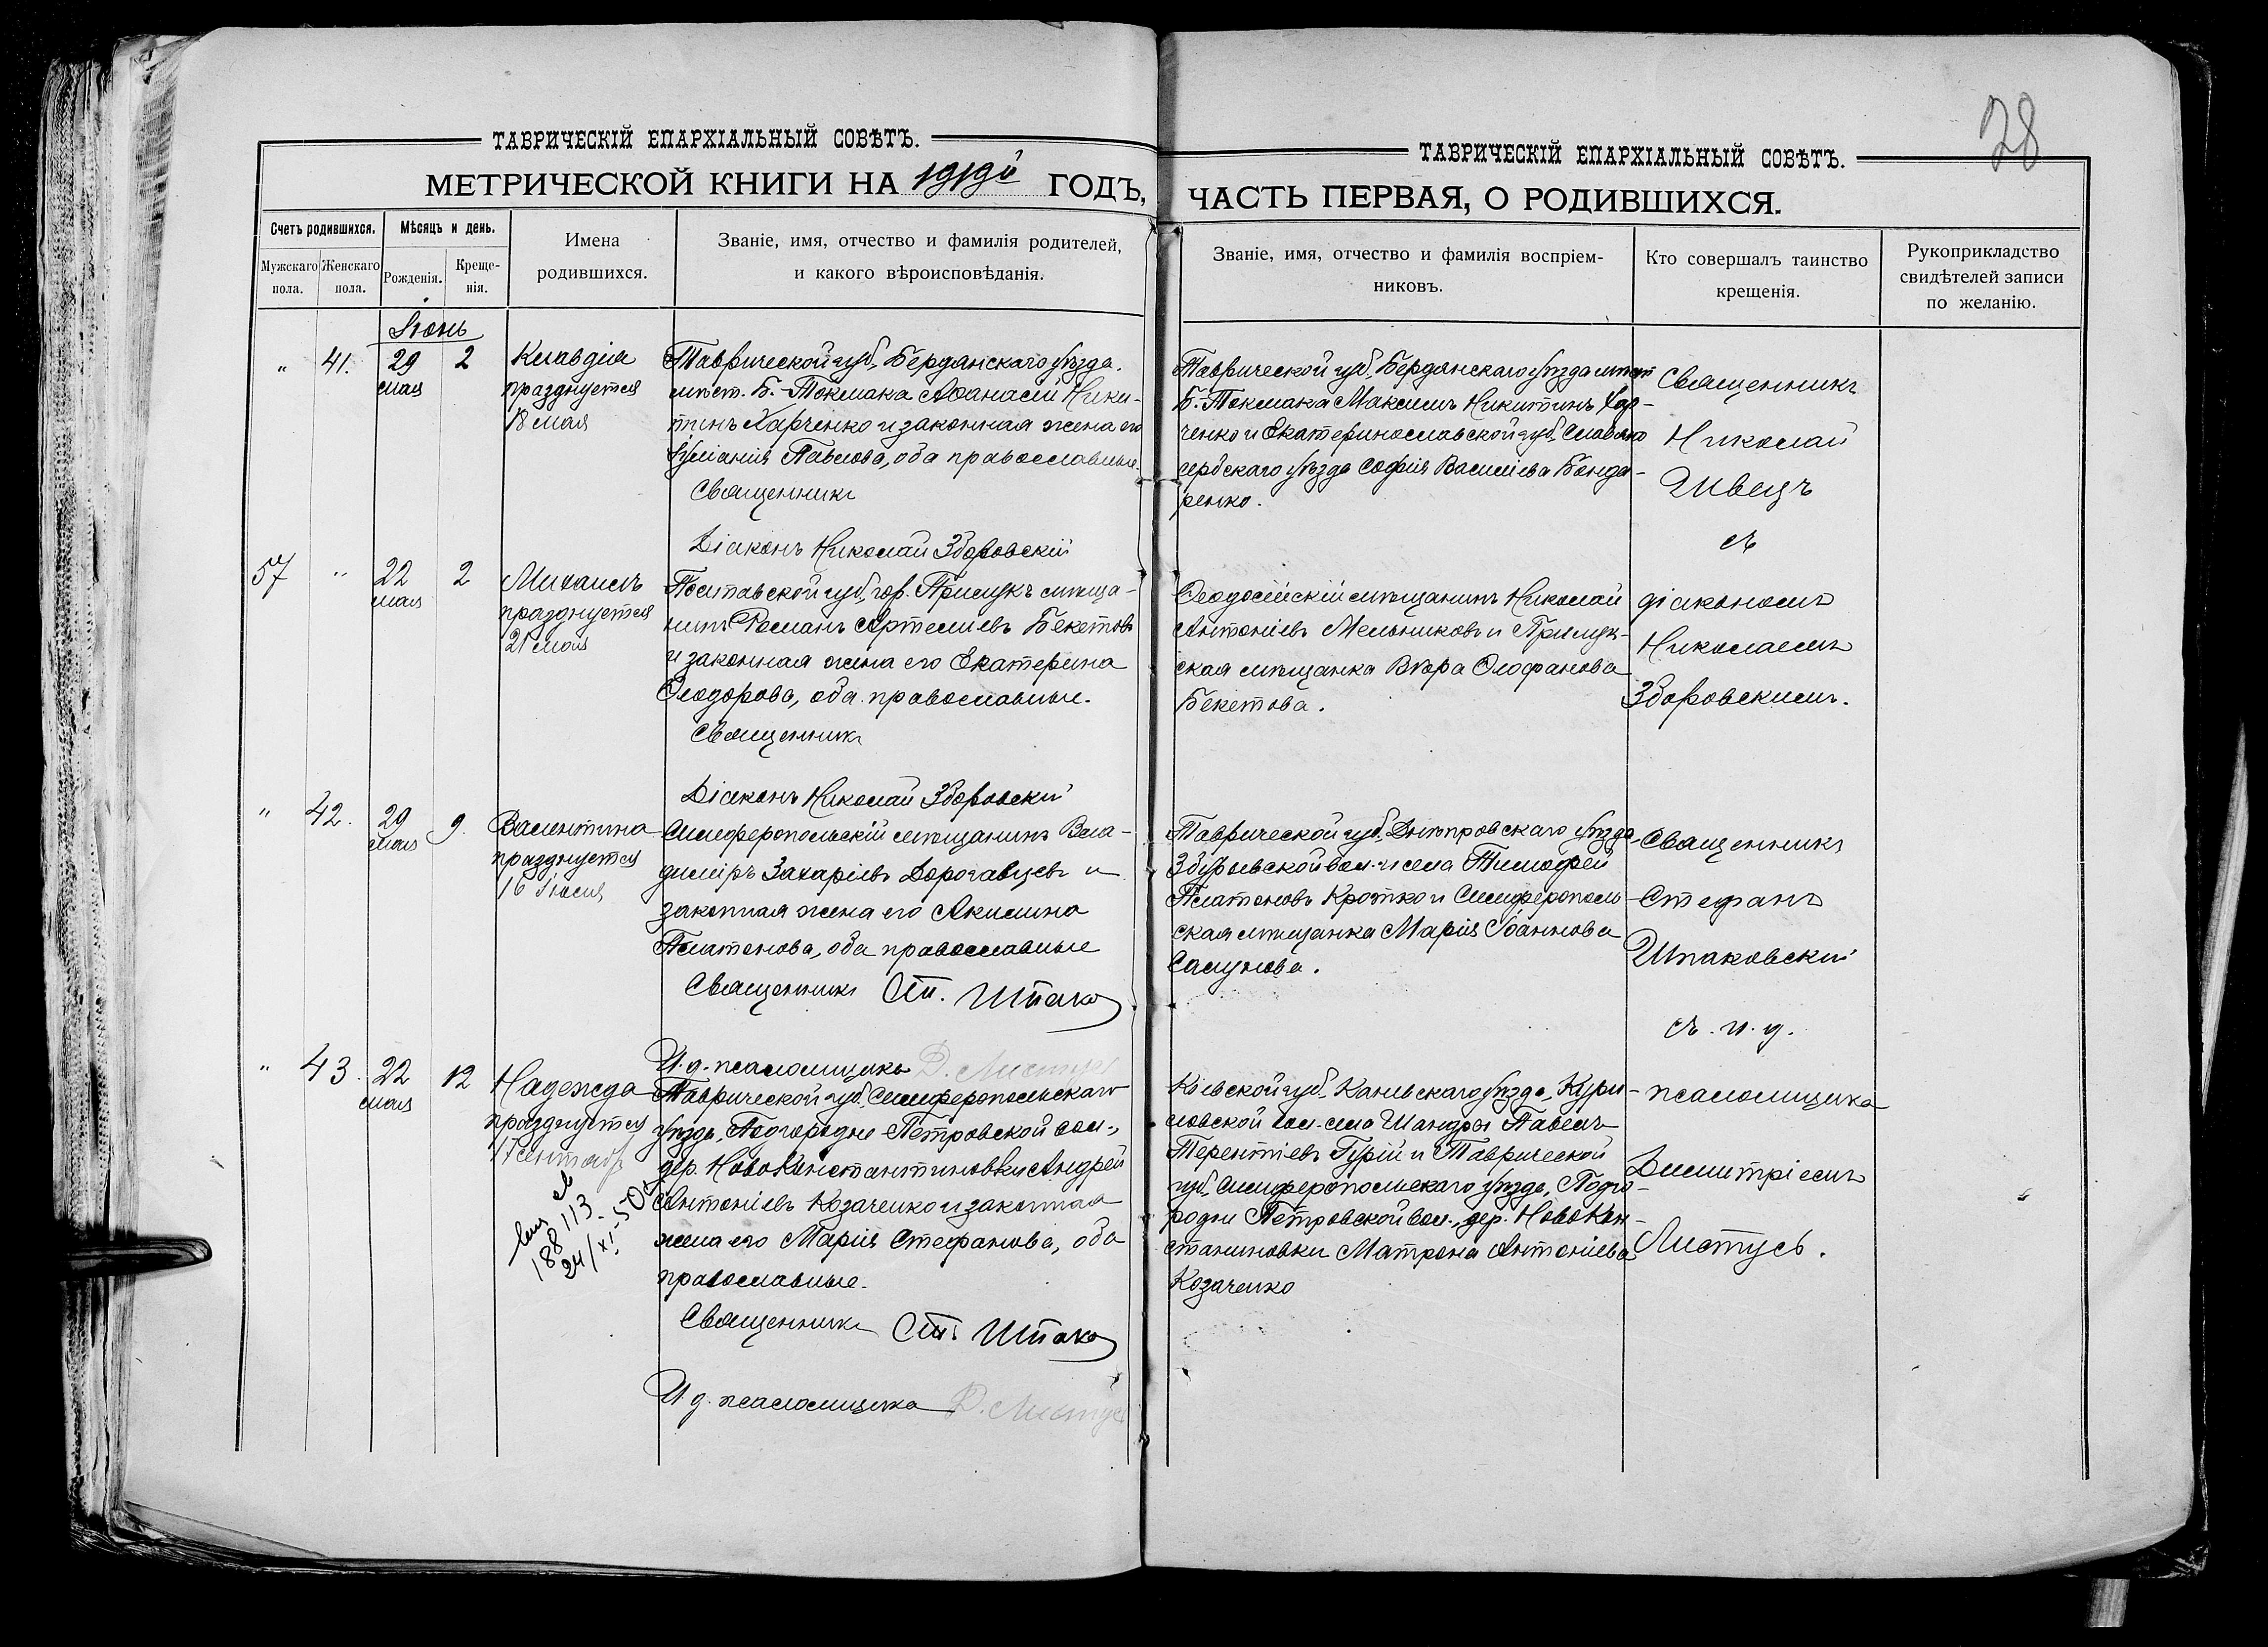 28
ТАВРИЧЕСКІЙ ЕПАРХІАЛЬНЫЙ СОВѢТЪ.
МЕТРИЧЕСКОЙ КНИГИ НА 1919й ГОДЪ,
Счетъ родившихся.
Мѣсяцъ и день.
Мужскаго пола.
Женскаго пола.
Рожденія.
Креще-
нія.
Имена
родившихся.
Званіе, имя, отчество и фамилія родителей,
и какого вѣроисповѣданія.
ТАВРИЧЕСКІЙ ЕПАРХІАЛЬНЫЙ СОВѢТЪ.
ЧАСТЬ ПЕРВАЯ, О РОДИВШИХСЯ.
Званіе, имя, отчество и фамилія воспріем-
никовъ.
Кто совершалъ таинство
крещенія.
Рукоприкладство
свидѣтелей записи
по желанію.
Іюнь
" 41. 29 2
мая
Клавдія
празднуется
18 мая
Таврической губ., Бердянскаго уѣзда.
мѣст. Б.-Токмака Аѳанасій Ники-
тинъ Харченко и законная жена его
Павлова, оба православные.
Священникъ
Діаконъ Николай Зборовскій
Таврической губ. Бердянскаго уѣзда мѣст
Б.-Токмака Максимъ Никитинъ Хар-
ченко и Екатеринославской губ. Славяно
сербскаго уѣзда Софія Василіева Бонда-
ренко.
Священникъ
Николай
Швецъ
съ
57 " 22 2
мая
Михаилъ
празднуется
21 мая
Полтавской губ., гор. Прилукъ мѣща-
нинъ Романъ Артеміевъ Бекетовъ
и законная жена его Екатерина
Ѳеодорова, оба православные.
Священникъ
Діаконъ Николай Зборовскій
Ѳеодосійскій мѣщанинъ Николай
Антоніевъ Мельниковъ и Прилук-
ская мѣщанка Вѣра Ѳеофанова
Бекетова.
діакономъ
Николаемъ
Зборовскимъ.
" 42. 29 9.
мая
Валентина
празднуется
16 Іюля
Симферопольскій мѣщанинъ Вла-
диміръ Захаріевъ Дорогавцевъ и
законная жена его Акилина
Платонова, оба православные
Священникъ Ст. Шпако
И. д. псаломщика Д. Листусъ
Таврической губ. Днѣпровскаго уѣзда,
Збурьевской вол. и села Тимофей
Платоновъ Кротко и Симферополь-
ская мѣщанка Марія Іоаннова
Сапунова.
Священникъ
Стефанъ
Шпаковскій
съ. и. д.
" 43. 22 12
мая
Надежда
празднуется
17 сентября
188113
24/XI-50
Таврической губ. Симферопольскаго
уѣзда, Подгородне-Петровской вол.,
дер. Ново Константиновки Андрей
Антоніевъ Козаченко и законная
жена его Марія Стефанова, оба
православные.
Священникъ Ст. Шпако
И. д. псаломщика Д. Листусъ
Кіевской губ. Каневскаго уѣзда, Кури-
ловской вол. села Шандры Павелъ
Терентіевъ Гурій и Таврической
губ., Симферопольскаго уѣзда, Подго-
родне Петровской вол., дер. Ново Кон-
стантиновки Матрона Антоніева
Козаченко
псаломщика
Димитріемъ
Листусъ.